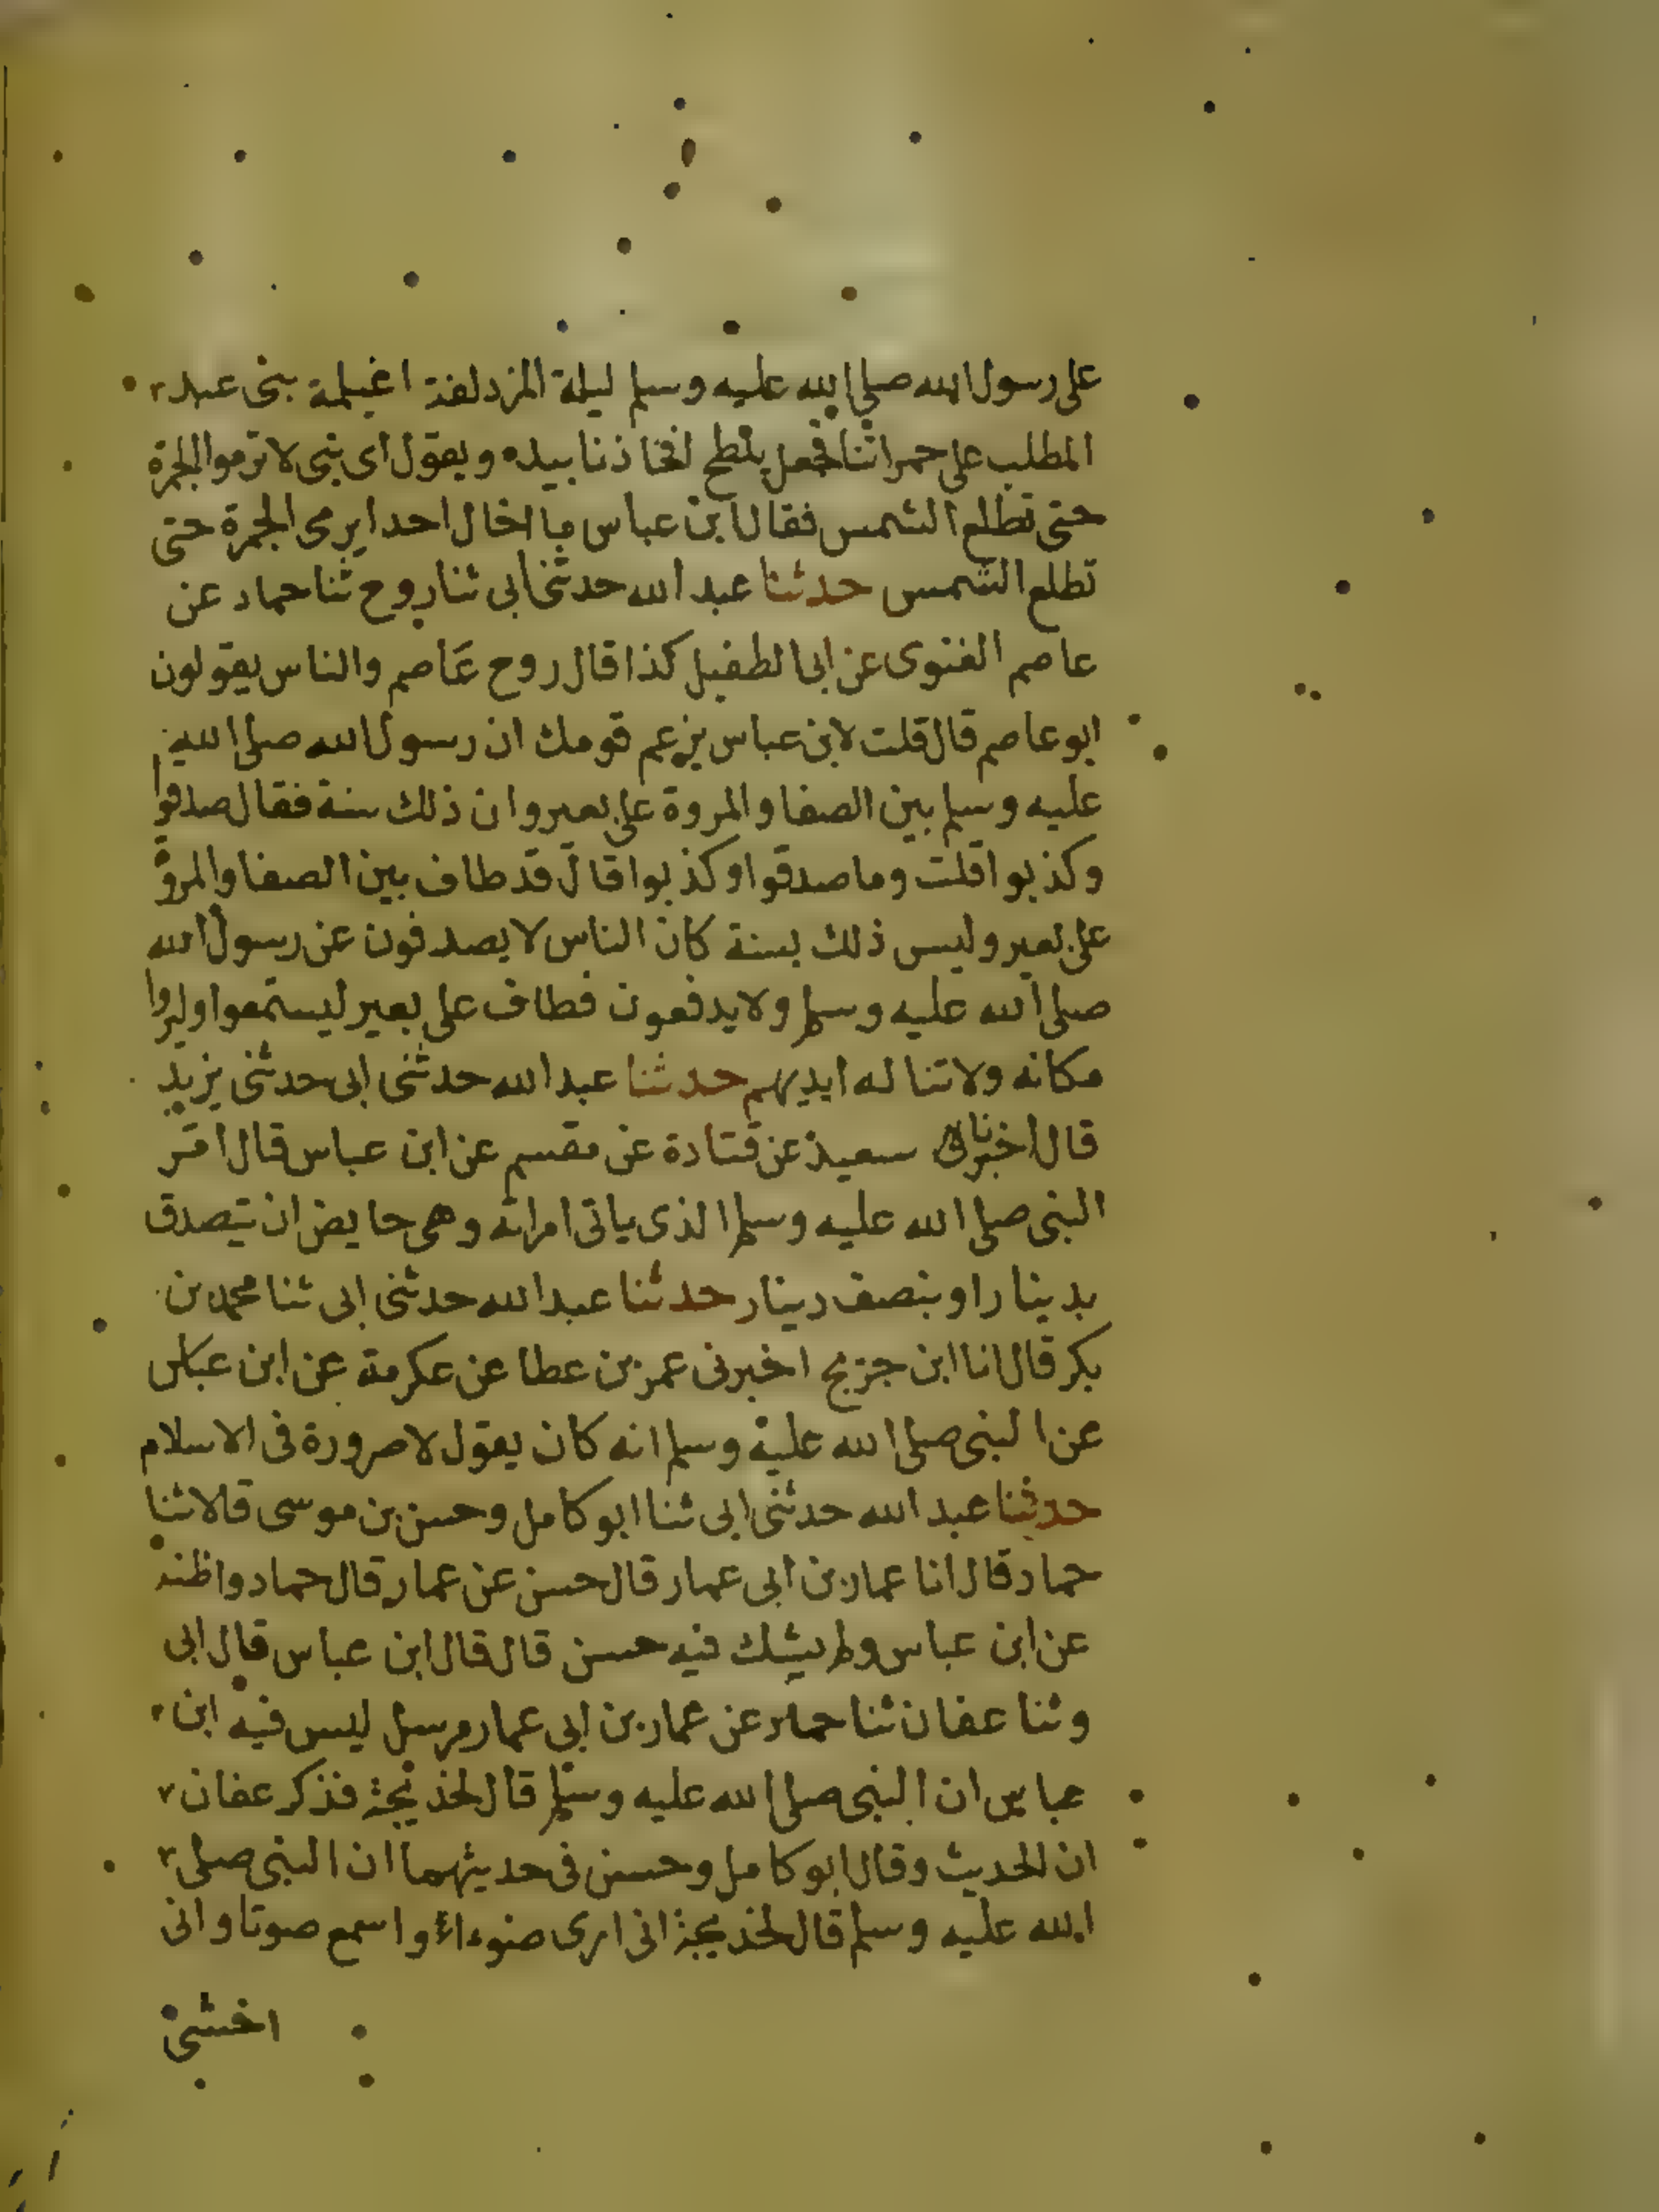 على رسول الله صلى الله عليه وسلم ليلة المزدلفة اغيلمة بنى عبد
المطلب على حمراتنا فجعل يلطح افخاذنا بيده ويقول اى بنى لا ترموا الجمرة
حتى تطلع الشمس فقال ابن عباس ما اخال احدا يرمى الجمرة حتى
تطلع الشمس حدثنا عبد الله حدثنى ابى ثنا روح ثنا حماد عن
عاصم الغنوى عن ابى الطفيل كذا قال روح عاصم والناس يقولون
ابو عاصم قال قلت لابن عباس يزعم قومك ان رسول الله صلى الله
عليه وسلم بين الصفا والمروة على بعير وان ذلك سنة فقال صدقوا
وكذبوا قلت وما صدقوا وكذبوا قال قد طاف بين الصفا والمروة
على بعير وليس ذلك بسنة كان الناس لا يصدفون عن رسول الله
صلى الله عليه وسلم ولا يدفعون فطاف على بعير ليستمعوا وليروا
مكانه ولا تناله ايديهم حدثنا عبد الله حدثنى ابى حدثنى يزيد
قال اخبرنا سعيد عن قتادة عن مقسم عن ابن عباس قال امر
النبى صلى الله عليه وسلم الذى ياتى امراته وهى حايض ان يتصدق
بدينار او بنصف دينار حدثنا عبد الله حدثنى ابى ثنا محمد بن
بكر قال انا ابن جريج اخبرنى عمر بن عطا عن عكرمة عن ابن عباس
عن النبى صلى الله عليه وسلم انه كان يقول لا صرورة فى الاسلام
حدثنا عبد الله حدثنى ابى ثنا ابو كامل وحسن بن موسى قالا ثنا
حماد قال انا عمار بن ابى عمار قال حسن عن عمار قال حماد واظنه
عن ابن عباس ولم يشك فيه حسن قال قال ابن عباس قال ابى
وثنا عفان ثنا حماد عن عمار بن ابى عمار مرسل ليس فيه ابن
عباس ان النبى صلى الله عليه وسلم قال لخديجة فذكر عفان
ان الحديث وقال ابو كامل وحسن فى حديثهما ان النبى صلى
الله عليه وسلم قال لخديجة انى ارى ضوءا واسمع صوتا وانى
اخشى